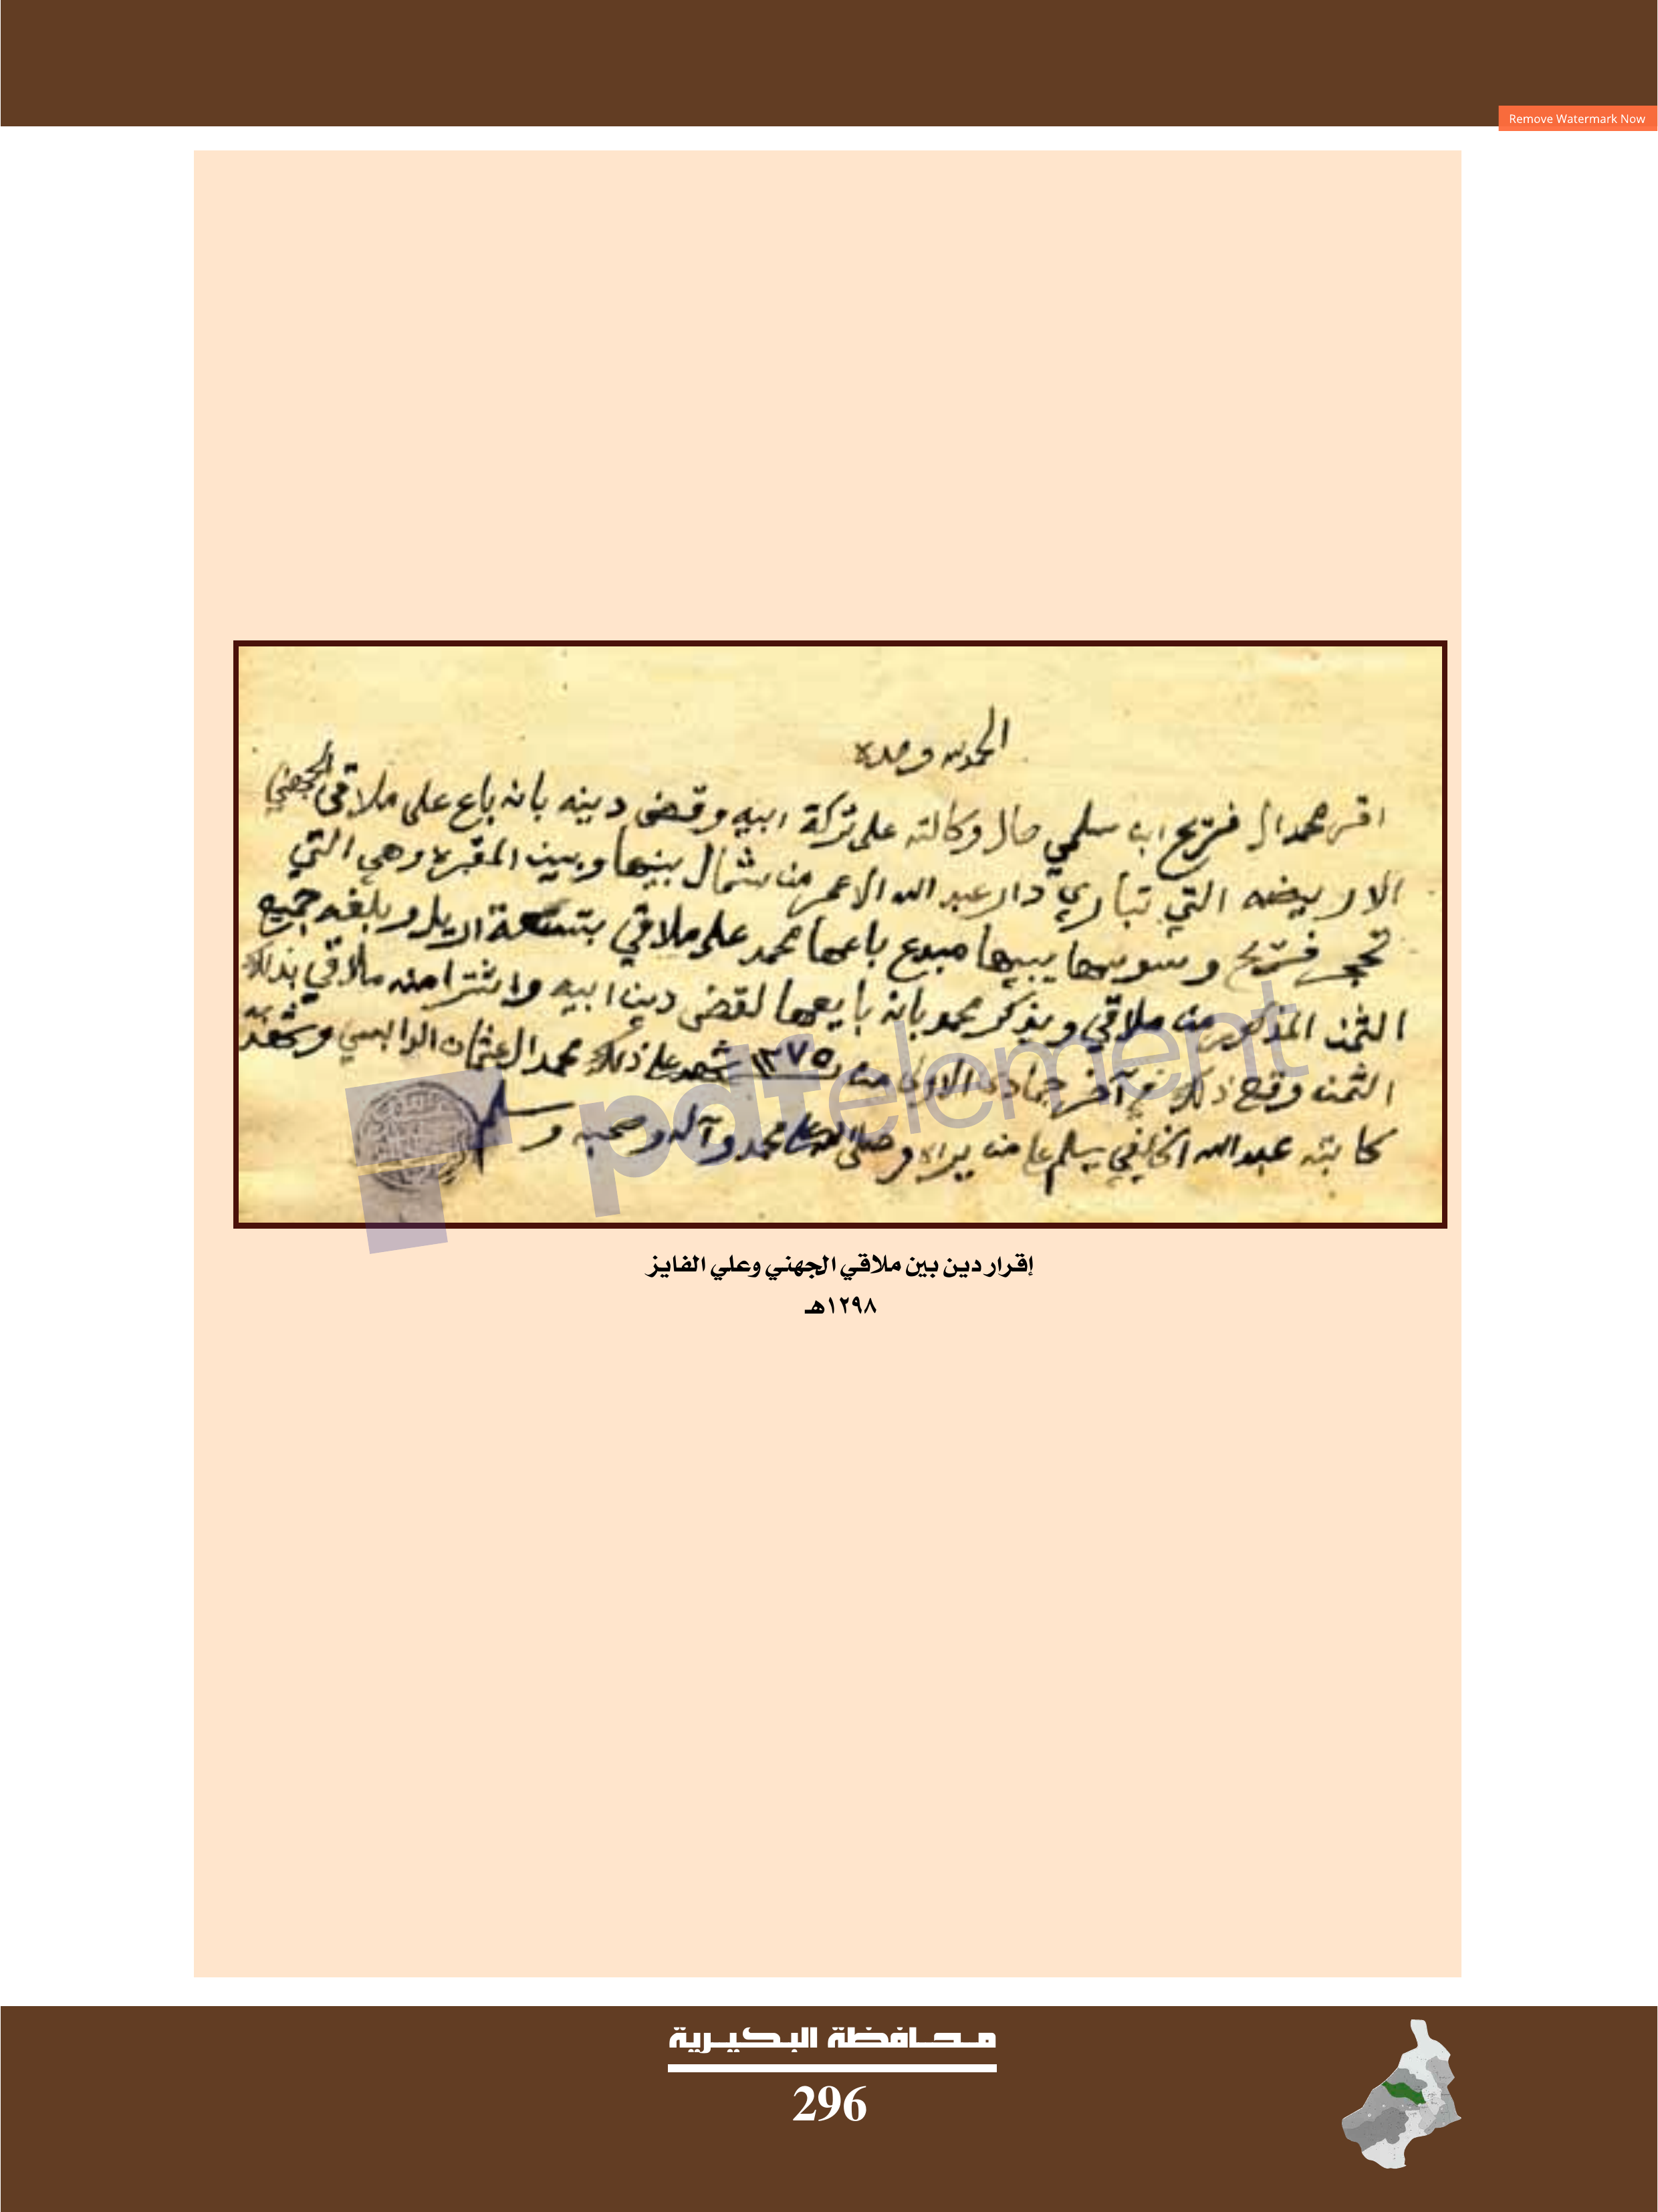 Remove Watermark Now
الحمد لله وحده
اقر محمد ال فريح اب سلمي حال وكالته على تركة ابيه وقضى دينه بانه باع على ملاقي الجهني
الاريضه التي تباري دار عبد الله الاعمر من شمال بينها وبين المقبره وهي التي
تحجر فريح وسو بها مبدع باعها محمد على ملاقي بتسعة اريل وبلغه جميع
الثمن المذكور من ملاقي ويذكر محمد بانه بايعها لقضى دين ابيه واشترا منه ملاقي بذلك
الثمن وقع ذلك في آخر جمادى الاولى من ١٢٧٥ شهد على ذلك محمد ال عثمان وشهد به
كاتبه عبد الله الخليفي يسلم على من يراه وصلى الله على محمد وآله وصحبه وسلم
pdfelement
إقرار دين بين ملاقي الجهني وعلي الفايز
١٢٩٨هـ
محافظة البكيرية
296